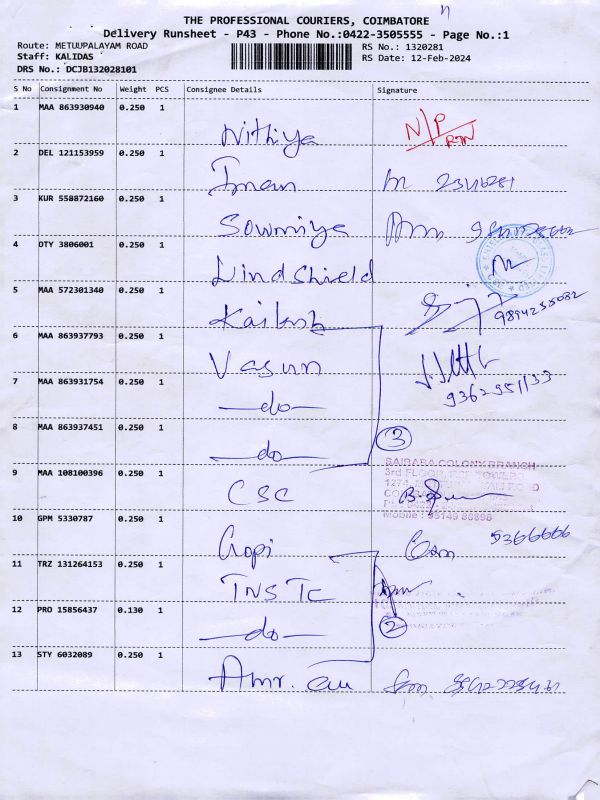 THE PROFESSIONAL COURIERS, COIMBATORE
Delivery Runsheet - P43 - Phone No.:0422-3505555 - Page No.:1
Route: METUUPALAYAM ROAD RS No.: 1320281
Staff: KALIDAS RS Date: 12-Feb-2024
DRS No.: DCJB132028101
S No Consignment No Weight PCS Consignee Details Signature
1 MAA 863930940 0.250 1 Nithiya N/P
2 DEL 121153959 0.250 1 Iman
3 KUR 558872160 0.250 1 Sowmiya
4 OTY 3806001 0.250 1 Windshield
5 MAA 572301340 0.250 1 Kailash 9894255082
6 MAA 863937793 0.250 1 Vasun
7 MAA 863931754 0.250 1 do 9362951133
8 MAA 863937451 0.250 1 do 3
SAIBABA COLONY BRANCH
3rd FLOOR
9 MAA 108100396 0.250 1 CSC
10 GPM 5330787 0.250 1 Gopi 5366666
11 TRZ 131264153 0.250 1 TNSTC
12 PRO 15856437 0.130 1 do 2
13 STY 6032089 0.250 1